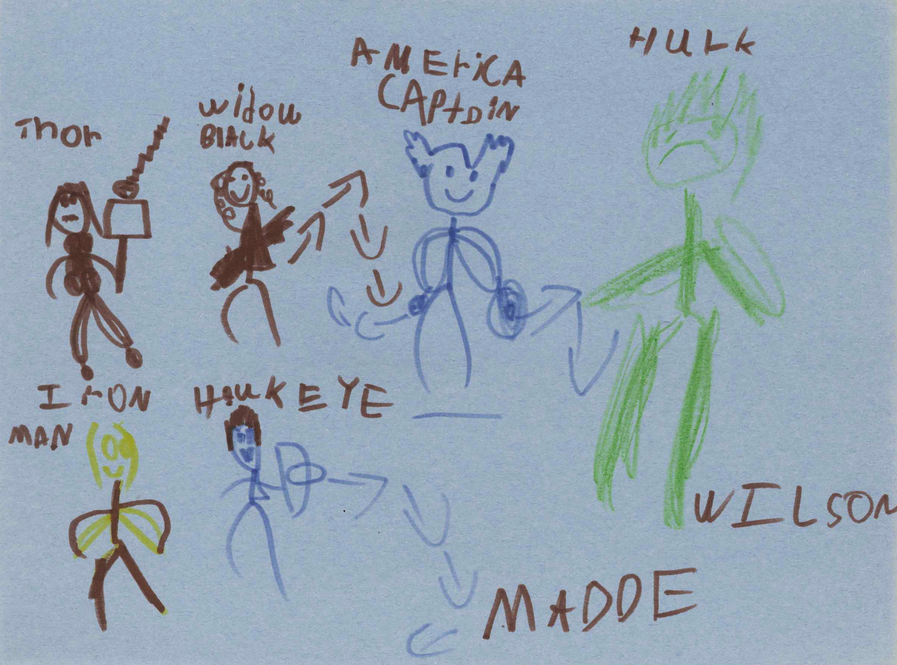 Thor
Widow
BLACK
AMEriCA
CAPtDiN
HULk
IrON
MAN
HAukEYE
WILSON
MADDE